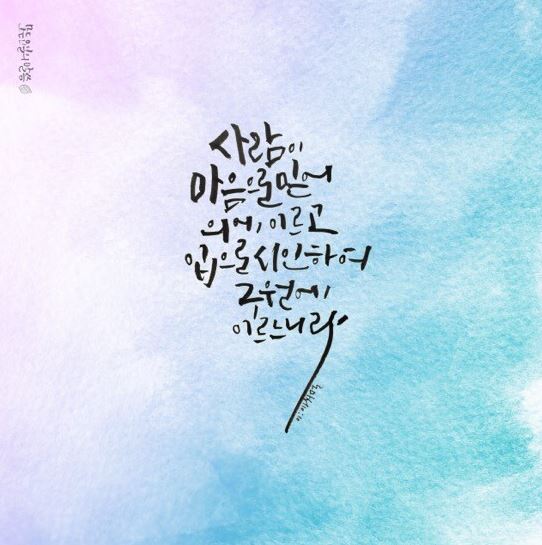 사람이
마음으로 믿어
의에 이르고
입으로 시인하여
구원에
이르느니라
로마서 10:10